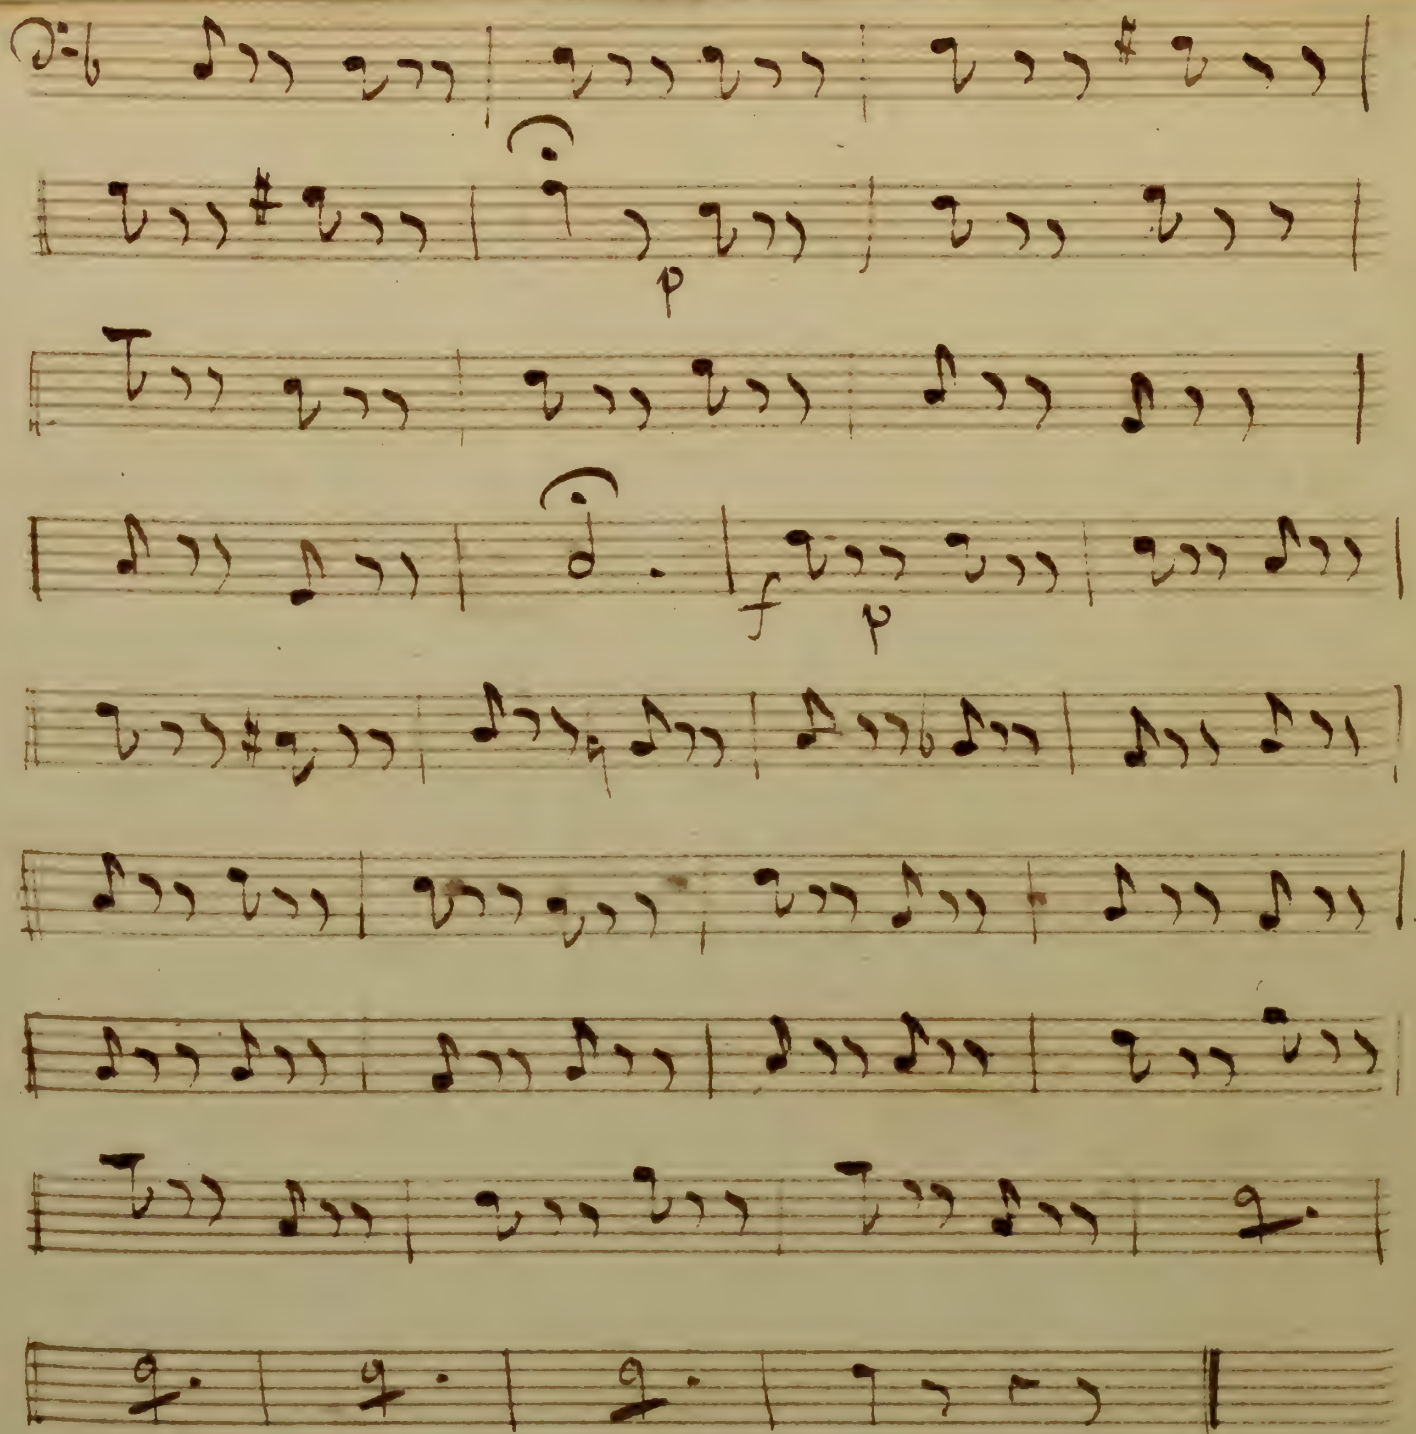 p
f p